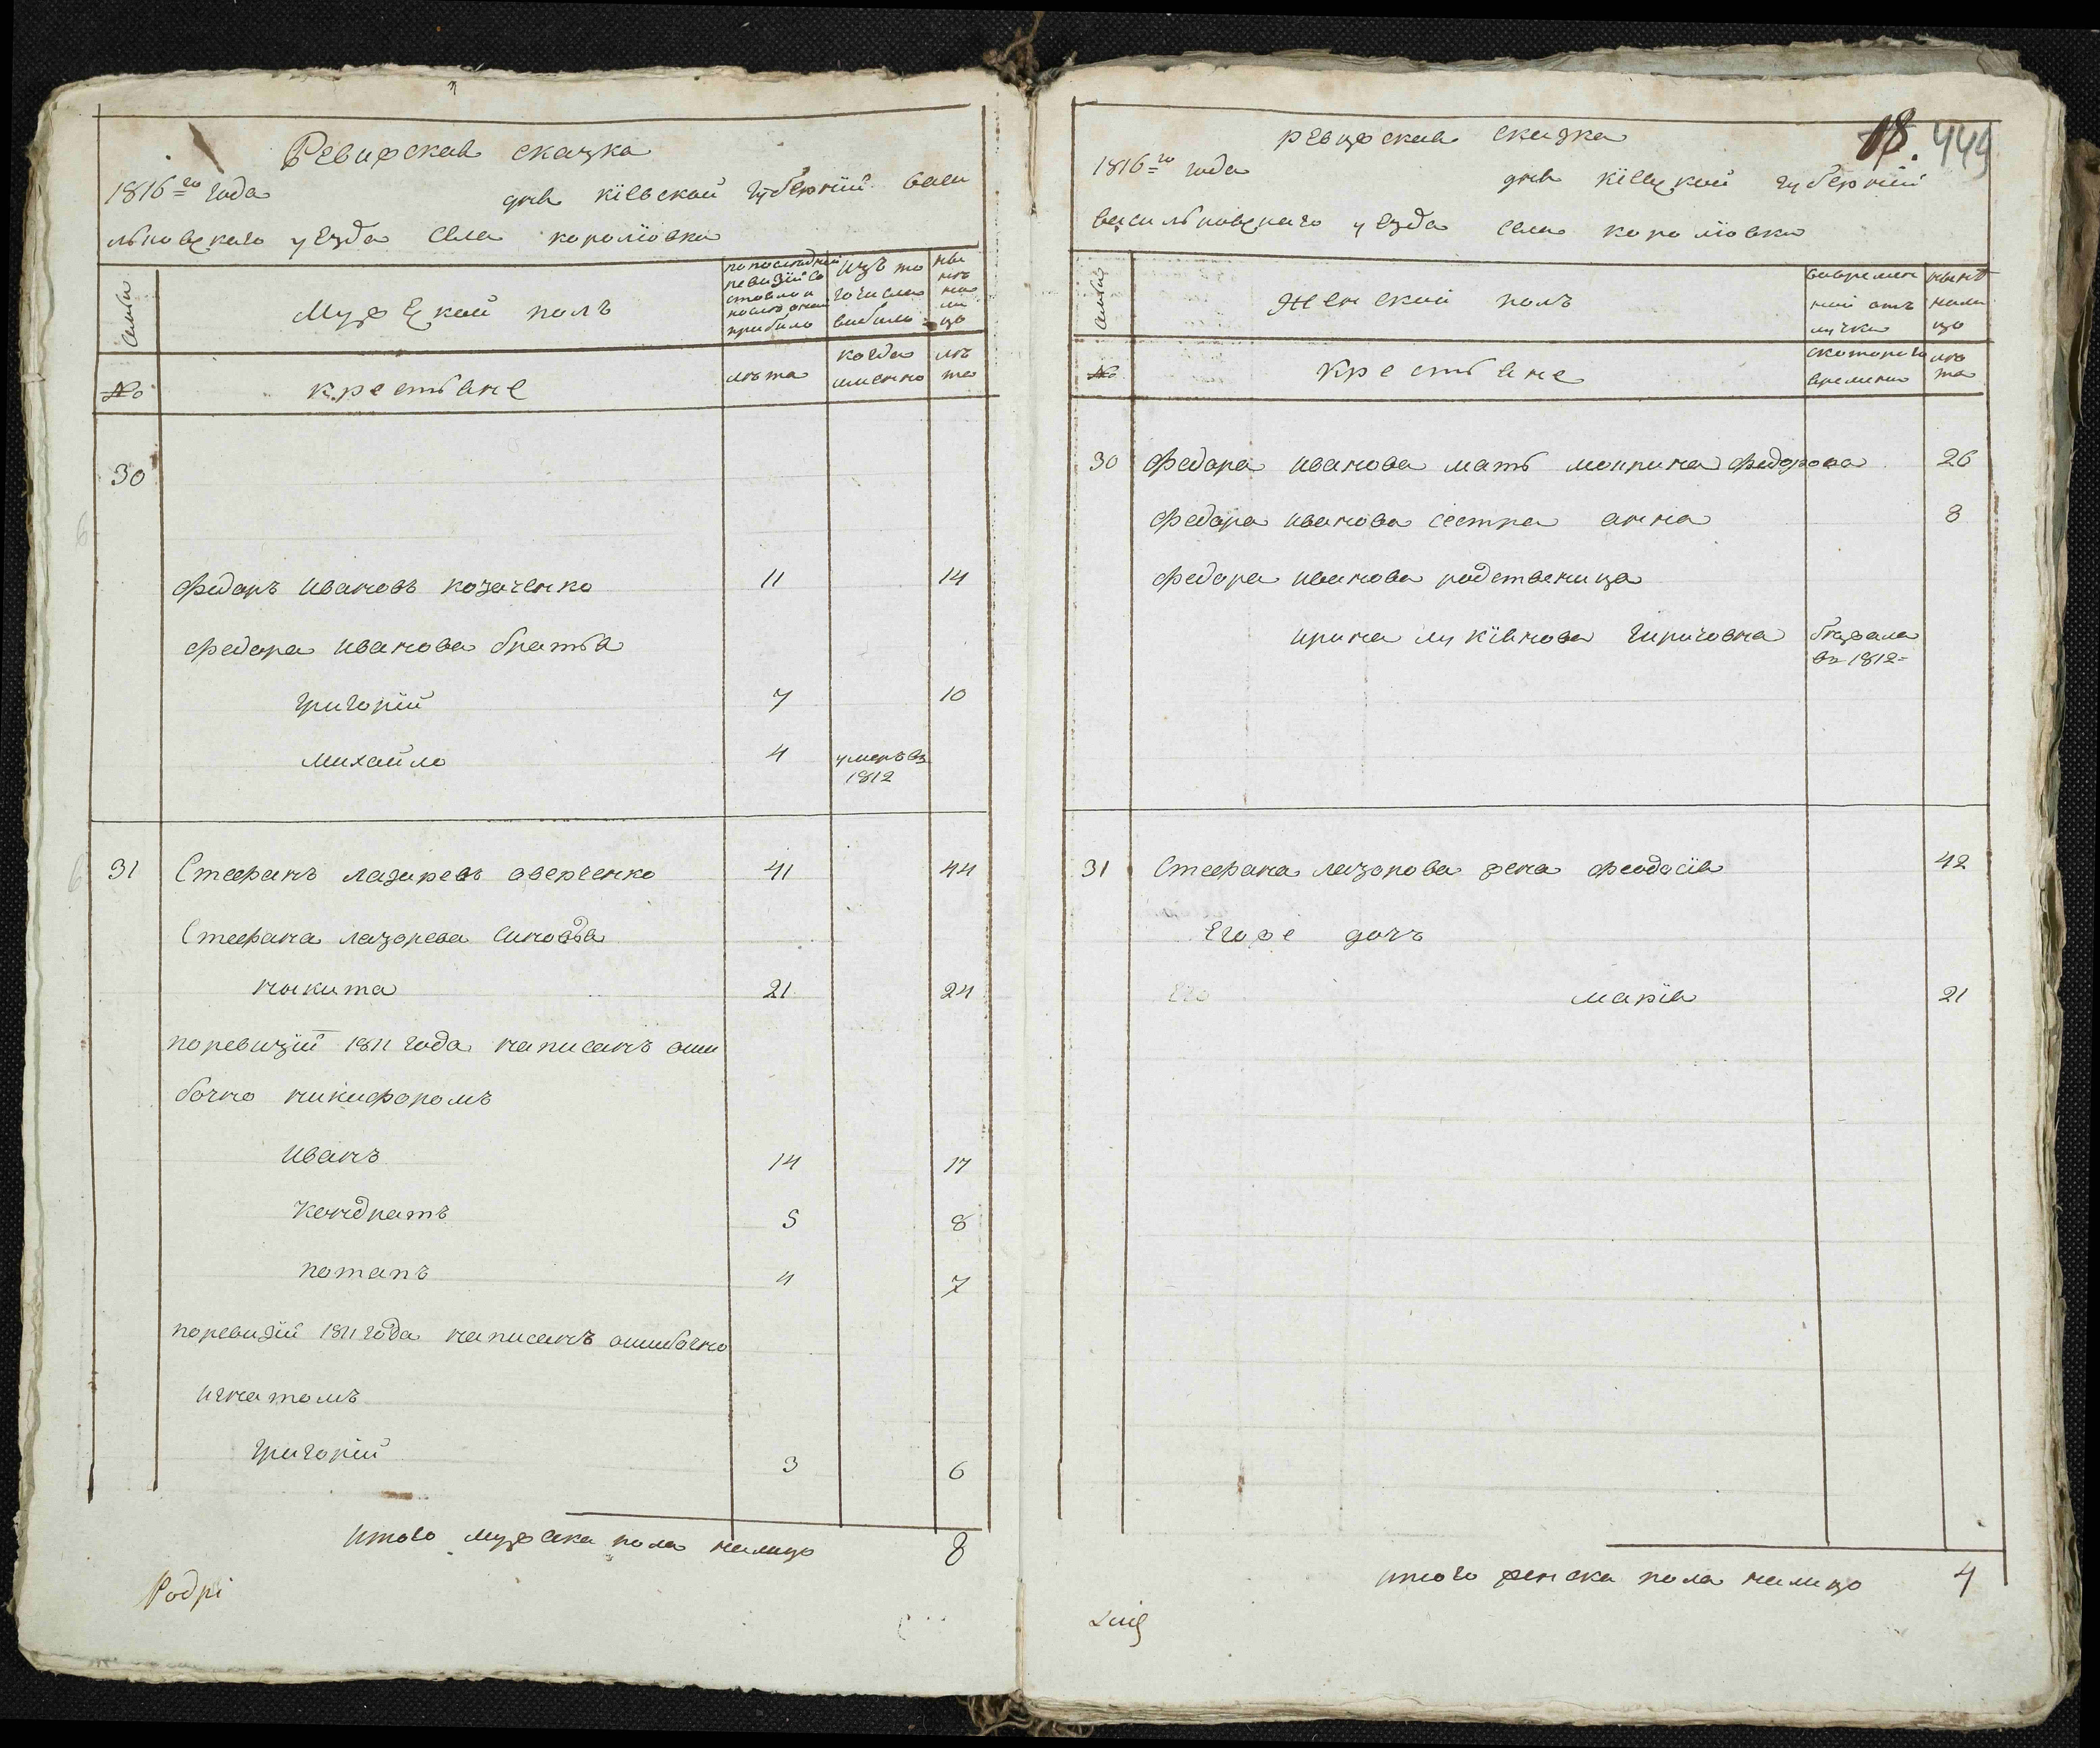 Ревизская сказка
1816=го года дня кіевской губерніи васи
льковскаго уезда села королювки
семьи
Мужескои полъ
по последней ревизіи состояло и после оной прибыло
изъ того числа выбыло
ныне на лицо
№
крестьяне
лета
когда именно
лета
30
федоръ ивановъ козаченко 11 14
федора иванова братья
григорій 7 10
михайло 4 умеръ въ 1812
31 Стефанъ лазаревъ аверченко 41 44
Стефана лазорева синовья
никита 21 24
поревизіи 1811 года написанъ оши
бочно никифоромъ
иванъ 14 17
кондратъ 5 8
потапъ 4 7
поревизіи 1811 года написанъ ошибочно
игнатомъ
григорій 3 6
итого мужска пола налицо 8
Podpi
18. 449
ревизская сказка
1816=го года дня кіевской губерніи
васильковскаго уезда села королювки
семьи
женский полъ
вовремен
ной отъ
лучки
ныне
нали
цо
№
крестьяне
скоторого
времени
ле
та
30 федора иванова мать мотрина федорова 26
федора иванова сестра анна 8
федора иванова родственица
ирина лукіянова бежала
въ 1812=
31 Стефана лазорова жена феодосія 42
Егоже дочъ
Его марія 21
итого женска пола налицо 4